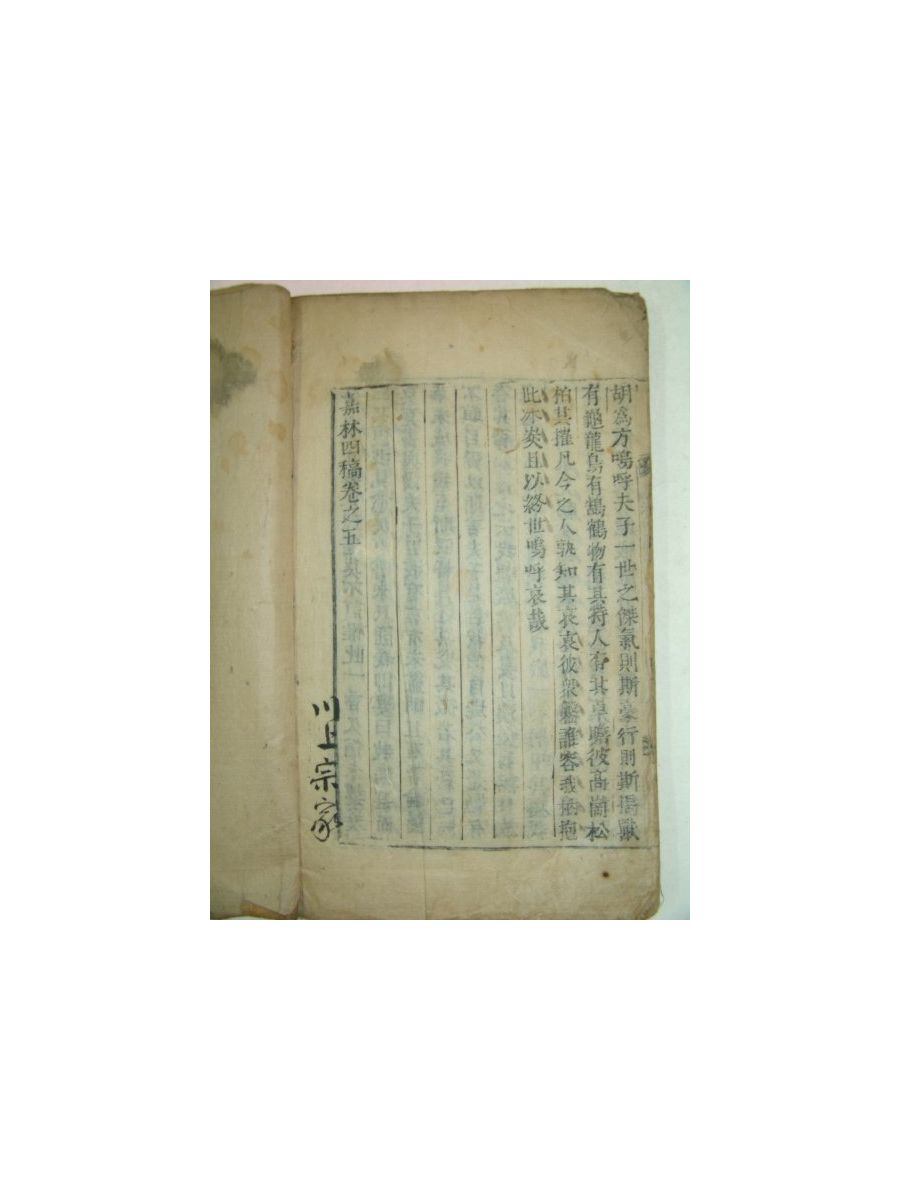 胡爲方嗚呼夫子一世之傑氣則斯豪行則斯儔獸
有龜龍鳥有鵠鶴物有其特人有其卓瞻彼高崗松
柏其摧凡今之人孰知其哀哀彼衆盤誰容我極抱
此氷炭且以終世嗚呼哀哉
嘉林四稿卷之五
川上宗家